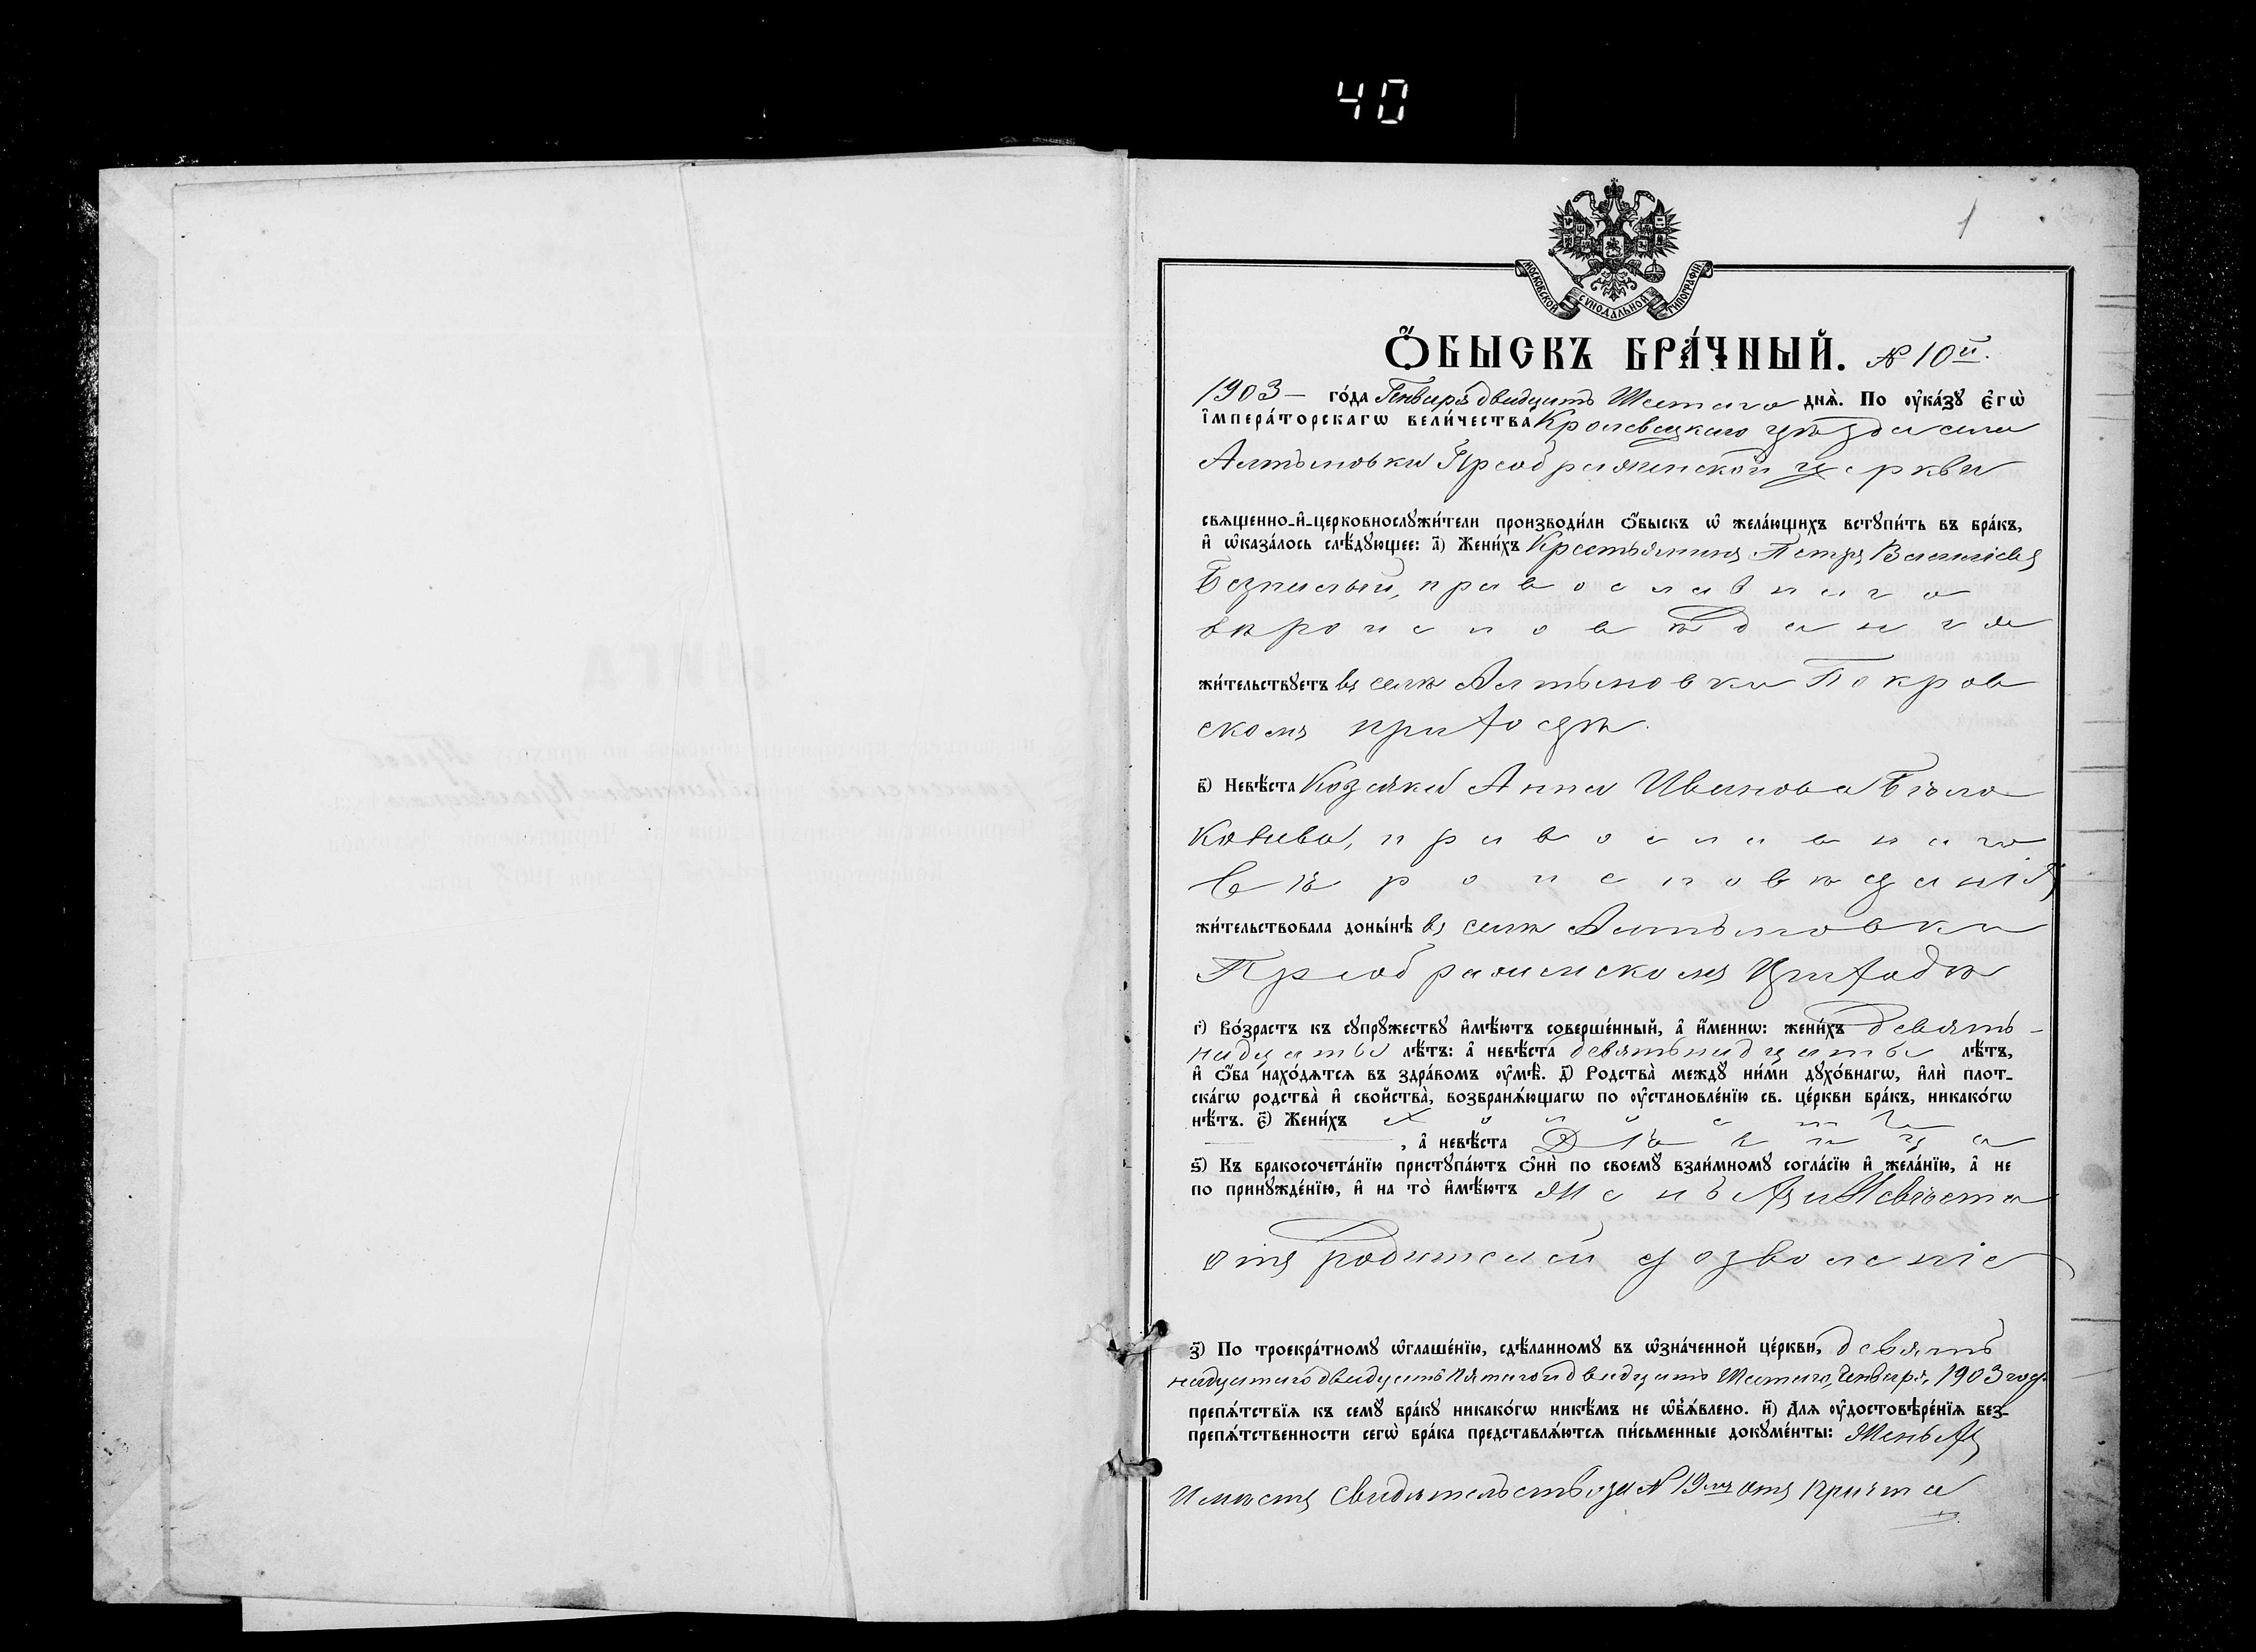 40
1
МОСКОВСКОЙ СѴНОДАЛЬНОЙ ТИПОГРАФІИ
Ѻ҆БЫСКЪ БРА́ЧНЫЙ. № 10й.
1903 – го́да Генваря двадцать Шестаго дня̀. По ᲂу҆ка́зꙋ є҆гѡ̀
і҆мпера́торскагѡ вели́чества Кролевецкаго уѣзда села
Алтыновки Преображенской церкви
священно-и҆-церковнослꙋжи́тели производи́ли ѻ҆́быскъ ѡ҆ жела́ющихъ вступи́ть въ бра́къ,
и҆ ѡ҆каза́лось слѣ́дꙋющее: а҃) Жени́хъ Крестьянинъ Петръ Василіевъ
православнаго
вѣроисповѣданія
жи́тельствꙋетъ въ селѣ Алтыновки Покров
скомъ приходѣ.
в҃) Невѣ́ста Козачка Анна Иванова Бѣло
православнаго
Вѣроисповѣданія
жи́тельствовала доны́нѣ въ селѣ Алтыновки
Преображенскомъ Приходѣ
г҃) Во́зрастъ къ сꙋпрꙋ́жествꙋ и҆мѣ́ютъ соверше́нный, а҆ и҆́меннѡ: жени́хъ девять-
надцать лѣ́тъ: а҆ невѣ́ста девятьнадцать лѣ́тъ,
и҆ ѻ҆́ба нахо́дятся въ здра́вомъ ᲂу҆мѣ̀. д҃) Родства̀ междꙋ̀ ни́ми дꙋхо́внагѡ, и҆лѝ плот-
ска́гѡ родства̀ и҆ свойства̀, возбраня́ющагѡ по ᲂу҆становле́нїю св. це́ркви бра́къ, никако́гѡ
нѣ́тъ. є҃) Жени́хъ холостъ
, а҆ невѣ́ста Дѣвица
ѕ҃) Къ бракосочета́нїю пристꙋпа́ютъ ѻ҆нѝ по своемꙋ̀ взаи́мномꙋ согла́сїю и҆ жела́нїю, а҆ не
по принꙋжде́нїю, и҆ на то̀ и҆мѣ́ютъ Женихъ и Невѣста
отъ родителей дозволеніе
з҃) По троекра́тномꙋ ѡ҆глаше́нїю, сдѣ́ланномꙋ въ ѡ҆зна́ченной це́ркви, девять
надцатаго двадцать пятаго и двадцать Шестаго, Генваря, 1903 года
препя́тствїя къ семꙋ̀ бра́кꙋ никако́гѡ никѣ́мъ не ѡ҆б̾я́влено. и҃) Для ᲂу҆достовѣре́нїя без-
препя́тственности сегѡ̀ бра́ка представля́ются пи́сьменные докꙋме́нты: Женихъ
Имѣетъ Свидѣтельство за № 19мъ отъ Причта